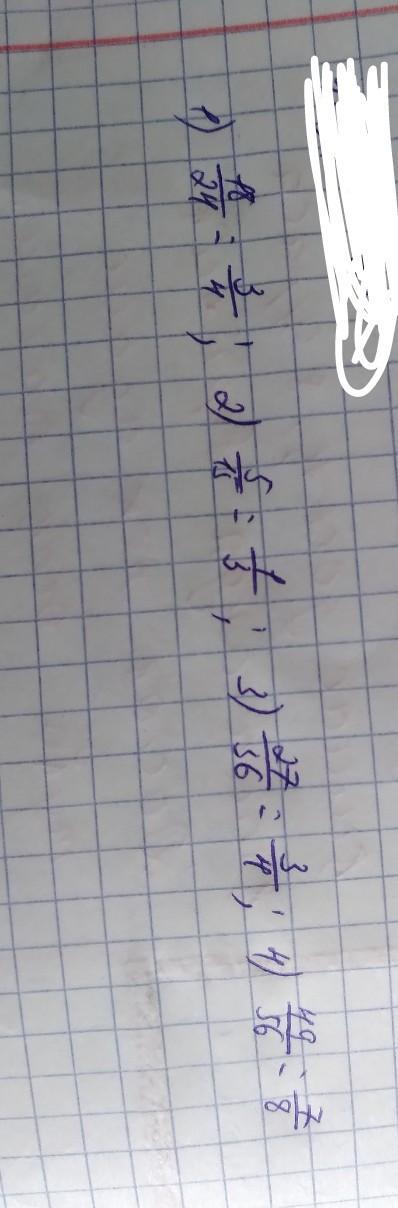 1) 18/24 = 3/4 ; 2) 5/15 = 1/3 ; 3) 27/36 = 3/4 ; 4) 49/56 = 7/8